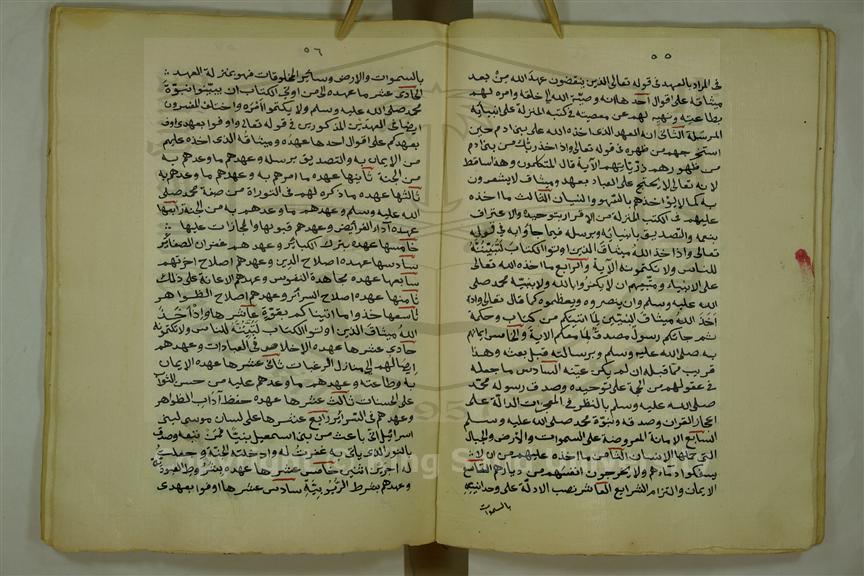 ٥٥
في المراد بالعهد في قوله تعالى الذين ينقضون عهد الله من بعد
ميثاقه على اقوال احدها انه وصية الله الى خلقه وامره لهم
بطاعته ونهيه لهم عن معصيته في كتبه المنزلة على انبيائه
المرسلة الثاني انه العهد الذي اخذه الله على بني ادم حين
استخرجهم من ظهره في قوله تعالى واذ اخذ ربك من بني ادم
من ظهورهم ذرياتهم الاية قال المتكلمون وهذا ساقط
لانه تعالى لا يحتج على العباد بعهد وميثاق لا يشعرون
به كما لا يؤاخذهم بالسهو والنسيان الثالث ما اخذه
عليهم في الكتب المنزلة من الاقرار بتوحيده والاعتراف
بنعمه والتصديق بانبيائه وبرسله فيما جاؤا به في قوله
تعالى واذ اخذ الله ميثاق الذين اوتوا الكتاب لتبيننه
للناس ولا تكتمونه الاية والرابع ما اخذه الله تعالى
على الانبياء ومتبعهم ان لا يكفروا بالله ولا بنبيه محمد صلى
الله عليه وسلم وان ينصروه ويعظموه كما قال تعالى واذ
اخذ الله ميثاق النبيين لما اتيتكم من كتاب وحكمة
ثم جاءكم رسول مصدق لما معكم الاية والخامس ايمانهم
به صلى الله عليه وسلم وبرسالته قبل بعثه وهذا
قريب مما قبله ان لم يكن عينه السادس ما جعله
في عقولهم من الحجة على توحيده وصدق رسوله محمد
صلى الله عليه وسلم بالنظر في المعجزات الدالة على
اعجاز القران وصدقه ونبوة محمد صلى الله عليه وسلم
السابع الامانة المعروضة على السموات والارض والجبال
التي حملها الانسان الثامن ما اخذه عليهم من ان لا
يسفكوا دماءهم ولا يخرجون انفسهم من ديارهم التاسع
الايمان والتزام الشرايع العاشر نصب الادلة على وحدانيته
بالسموات
٥٦
بالسموات والارض وسائر المخلوقات فهو بمنزلة العهد
الحادي عشر ما عهده الى من اوتي الكتاب ان يبينوا نبوة
محمد صلى الله عليه وسلم ولا يكتموا امره واختلف المفسرون
ايضا في العهدين المذكورين في قوله تعالى واوفوا بعهدي اوف
بعهدكم على اقوال احدها عهده وميثاقه الذي اخذه عليهم
من الايمان به والتصديق برسله وعهدهم ما وعدهم به
من الجنة ثانيها عهده ما امرهم به وعهدهم ما وعدهم به
ثالثها عهده ما ذكره لهم في التوراة من صفة محمد صلى
الله عليه وسلم وعهدهم ما وعدهم به من الجنة رابعها
عهده اداء الفرائض وعهدهم قبولها والمجازات عليها
خامسها عهده بترك الكبائر وعهدهم غفران الصغائر
سادسها عهده اصلاح الدين وعهدهم اصلاح اخرتهم
سابعها عهده مجاهدة النفوس وعهدهم الاعانة على ذلك
ثامنها عهده اصلاح السرائر وعهدهم اصلاح الظواهر
تاسعها خذوا ما اتيناكم بقوة عاشرها واذ اخذ
الله ميثاق الذين اوتوا الكتاب لتبيننه للناس ولا تكتمونه
حادي عشرها عهده الاخلاص في العبادات وعهدهم
ايصالهم الى منازل الرغبات ثاني عشرها عهده الايمان
به وطاعته وعهدهم ما وعدهم عليه من حسن الثواب
على الحسنات ثالث عشرها عهده حفظ آداب الظواهر
وعهدهم في السرائر رابع عشرها على لسان موسى لبني
اسرائيل اني باعث من بني اسمعيل نبيا فمن تبعه وصدق
بالنور الذي ياتي به غفرت له وادخلته الجنة وجعلت
له اجرين اثنين خامس عشرها عهده بشرط العبودية
وعهدهم بشرط الربوبية سادس عشرها اوفوا بعهدي